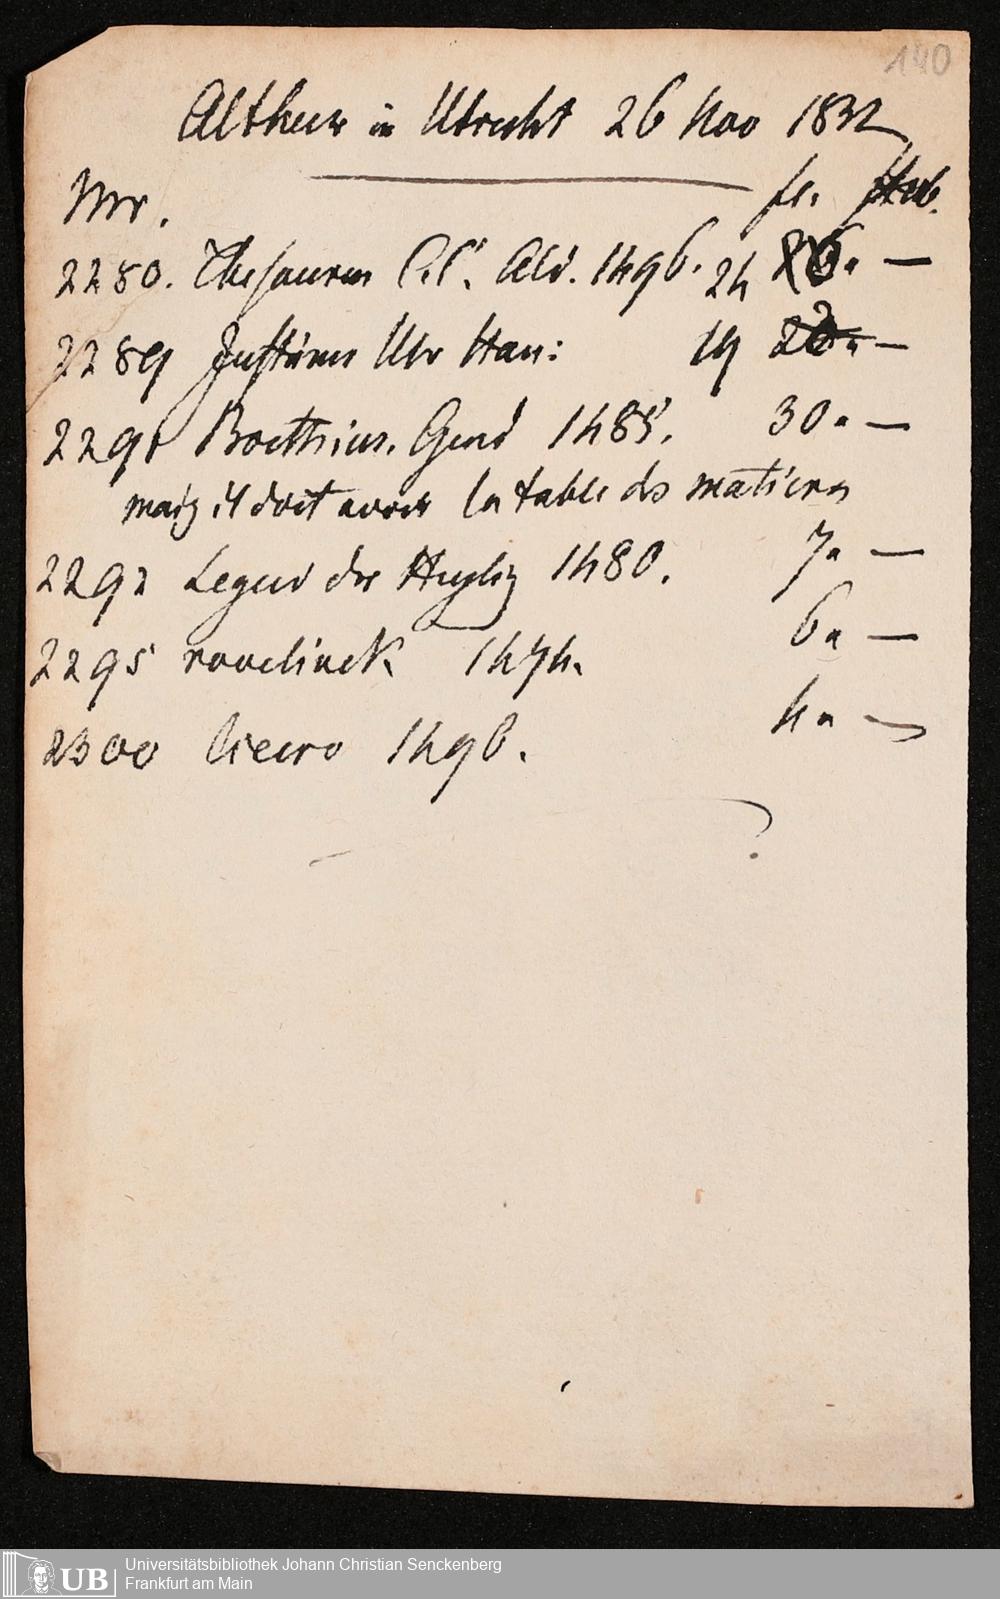 140
Altheer in Utrecht 26 Nov 1832
Nr. fl. Stub.
2280. Thesaurus C.C. Ald. 1496. 24 26. —
2289 Justinus Utr 19 22. —
2291 Boethius. Gend 1485. 30. —
mais il doit avoir la table des matieres
2292 Legend der Heylig 1480. 7. —
2295 roovelinck 1474. 6. —
2300 Cicero 1496. 4. —
UB
Universitätsbibliothek Johann Christian Senckenberg
Frankfurt am Main